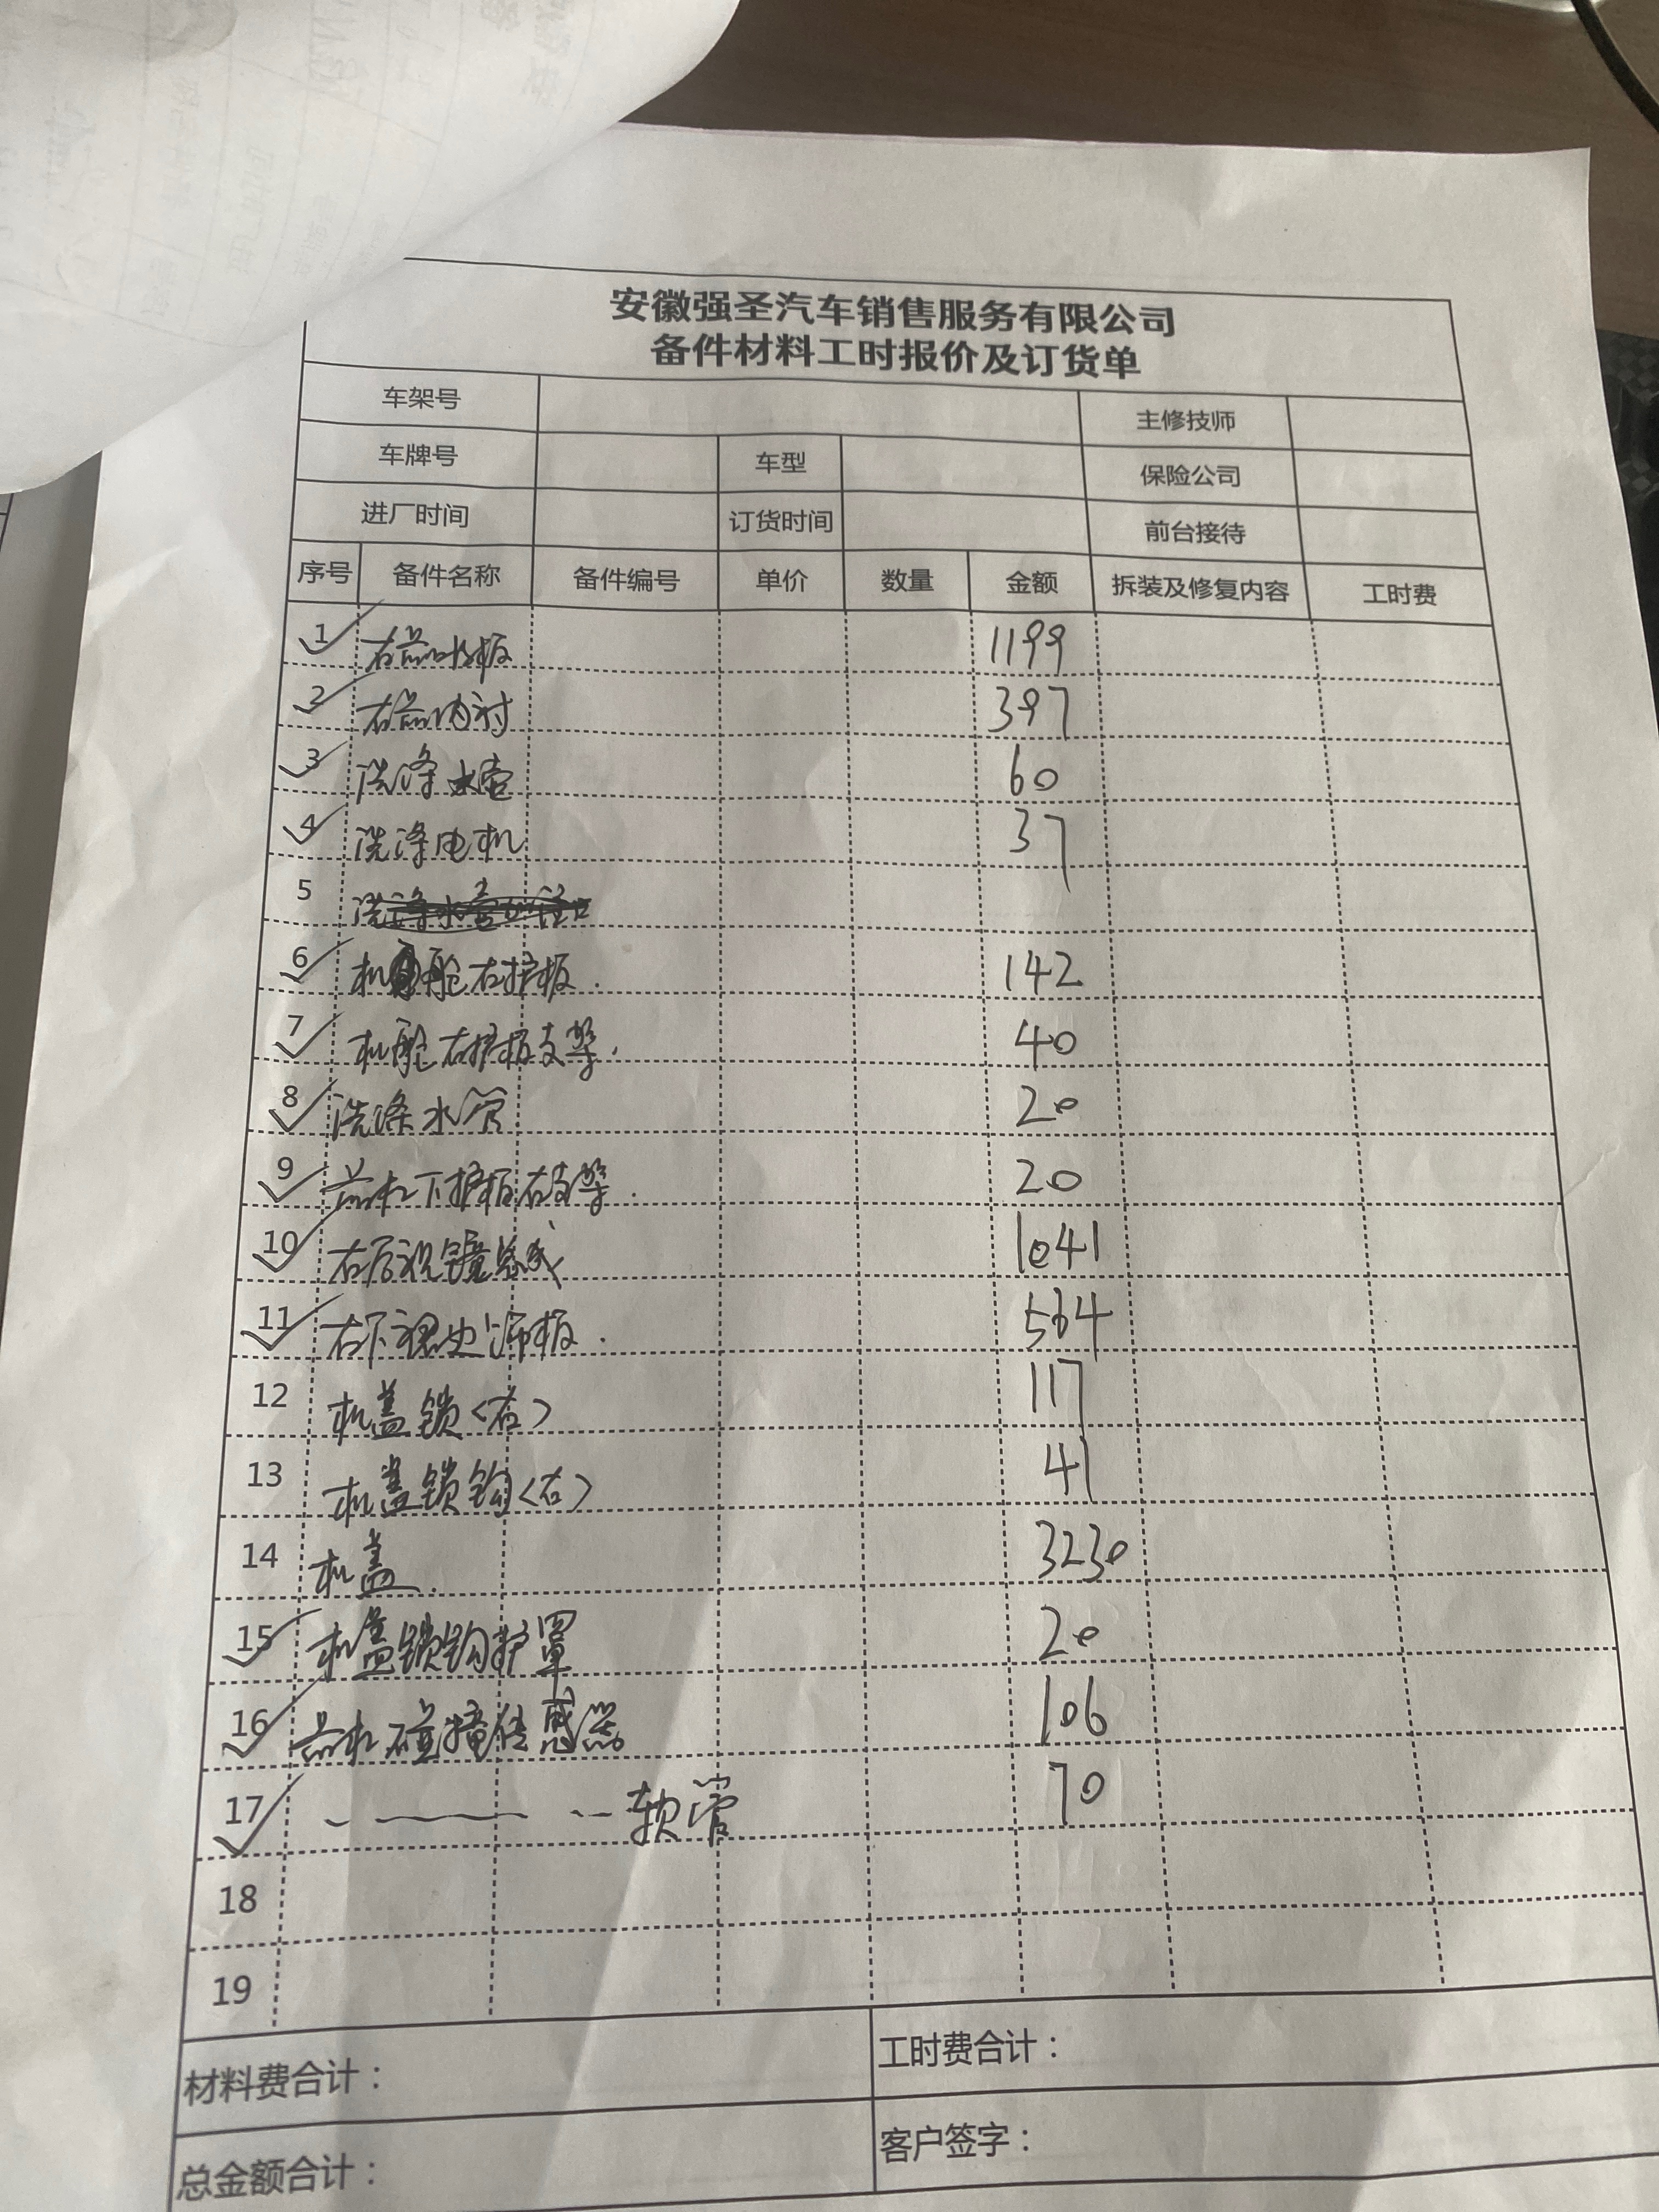 安徽强圣汽车销售服务有限公司
备件材料工时报价及订货单
车架号 主修技师
车牌号 车型 保险公司
进厂时间 订货时间 前台接待
序号 备件名称 备件编号 单价 数量 金额 拆装及修复内容 工时费
1 右前叶板 1199
2 右前内衬 397
3 洗涤水壶 60
4 洗涤电机 37
5 洗涤水壶
6 机舱右护板. 142
7 机舱右护板支架. 40
8 洗涤水管 20
9 前杠下护板右支架. 20
10 右后视镜总成 1041
11 右下裙边饰板. 564
12 机盖锁(右) 117
13 机盖锁钩(右) 41
14 机盖. 3230
15 机盖锁钩护罩 20
16 前杠碰撞传感器 106
17 软管 70
18
19
材料费合计： 工时费合计：
总金额合计： 客户签字：